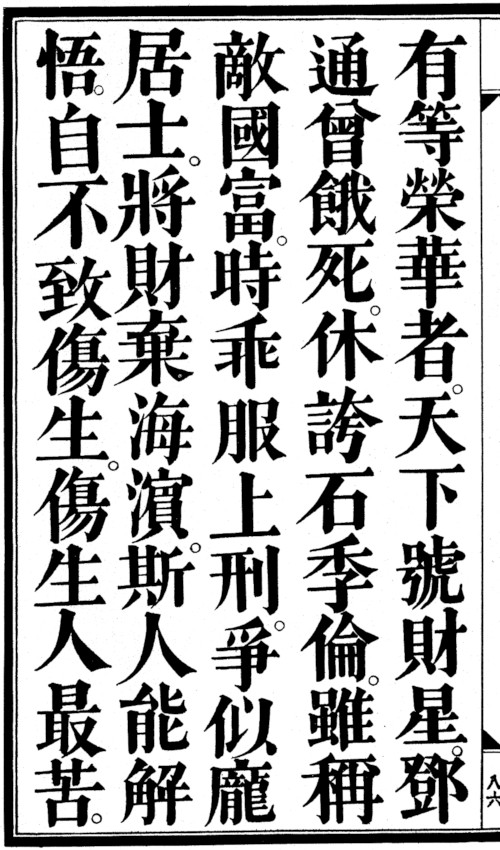 有等榮華者。天下號財星。鄧
通曾餓死。休誇石季倫。雖稱
敵國富。時乖服上刑。爭似龐
居士。將財棄海濱。斯人能解
悟。自不致傷生。傷生人最苦。
八六